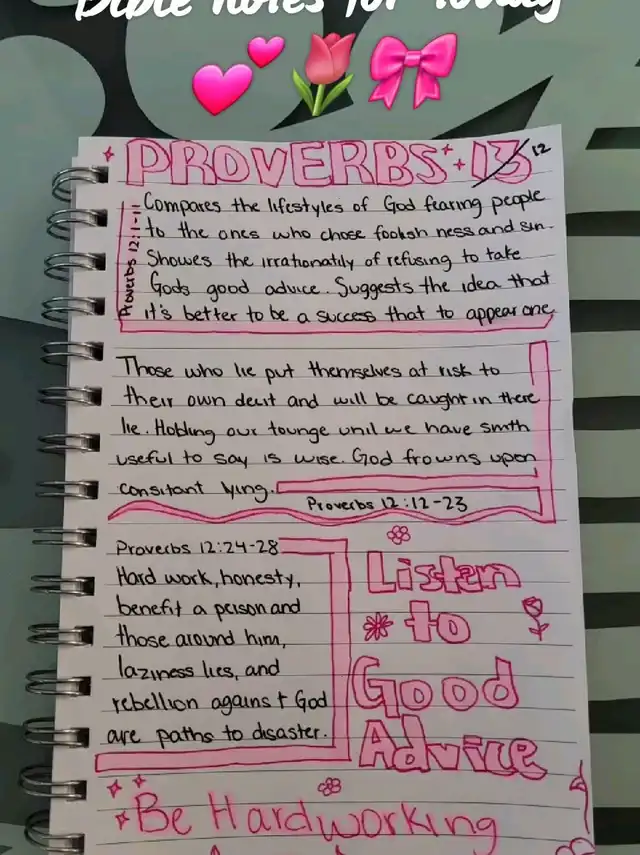 Bible notes for today
PROVERBS 13 12
Proverbs 12:1-11
Compares the lifestyles of God fearing people
to the ones who chose foolish ness and sin.
Showes the irrationatily of refusing to take
Gods good advice. Suggests the idea that
it's better to be a success that to appear one
Those who lie put themselves at risk to
their own deuit and will be caught in there
lie. Hobling our tounge unil we have smth
useful to say is wise. God frowns upon
consitant lying.
Proverbs 12:12-23
Proverbs 12:24-28
Hard work, honesty,
benefit a person and
those around him,
laziness lies, and
rebellion against God
are paths to disaster.
Listen
to
Good
Advice
Be Hardworking